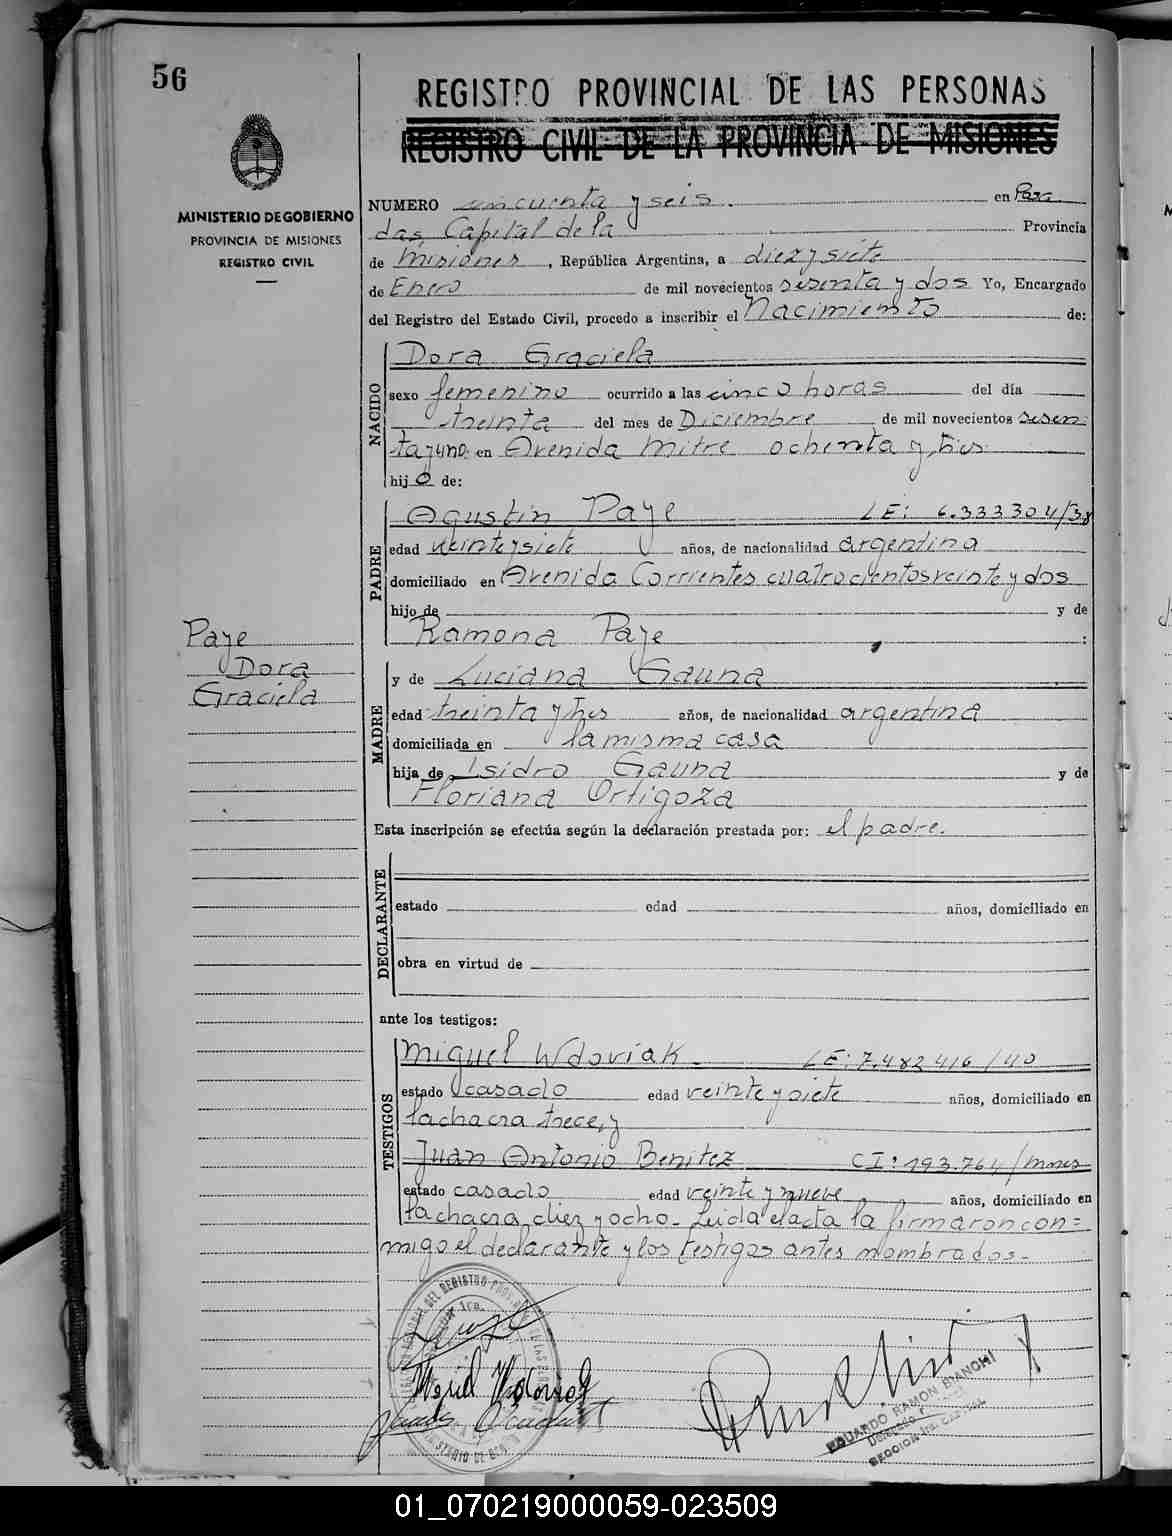 56
REGISTRO PROVINCIAL DE LAS PERSONAS
REGISTRO CIVIL DE LA PROVINCIA DE MISIONES
MINISTERIO DE GOBIERNO
PROVINCIA DE MISIONES
REGISTRO CIVIL
NUMERO cincuenta y seis. en Posa
das, Capital de la Provincia
de Misiones, República Argentina, a diez y siete
de Enero de mil novecientos sesenta y dos Yo, Encargado
del Registro del Estado Civil, procedo a inscribir el Nacimiento de:
NACIDO
Dora Graciela
sexo femenino ocurrido a las cinco horas del día
treinta del mes de Diciembre de mil novecientos sesen
ta y uno en Avenida Mitre ochenta y tres
hijo de:
PADRE
Agustin Paye LE: 6.333304/38
edad veinte y siete años, de nacionalidad argentina
domiciliado en Avenida Corrientes cuatrocientos veinte y dos
hijo de y de
Ramona Paye :
Paye
Dora
Graciela
MADRE
y de Luciana Gauna
edad treinta y tres años, de nacionalidad argentina
domiciliada en la misma casa
hija de Isidro Gauna y de
Floriana Ortigoza
Esta inscripción se efectúa según la declaración prestada por: el padre.
DECLARANTE
estado edad años, domiciliado en
obra en virtud de
ante los testigos:
TESTIGOS
Miguel Wdoviak LE: 7.482416/40
estado casado edad veinte y siete años, domiciliado en
la chacra trece, y
Juan Antonio Benitez CI: 193.764/mnes
estado casado edad veinte y nueve años, domiciliado en
la chacra diez y ocho. Leida el acta la firmaron con=
migo el declarante y los testigos antes nombrados.
EDUARDO RAMON BIANCHI
01_070219000059-023509